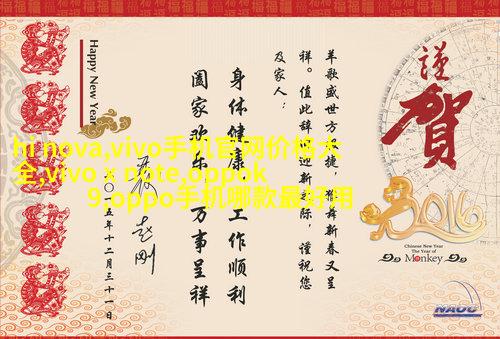 謹
賀
2016
Chinese New Year
The Year of
Monkey
NAOC
羊歌盛世方报捷，猴舞新春又呈
祥。值此辞旧迎新之际，谨祝您
及家人：
身体健康 工作顺利
阖家欢乐 万事呈祥
二〇一五年十二月三十一日
Happy New Year
hi nova,vivo手机官网价格大
全,vivo x note,oppok
9,oppo手机哪款最好用